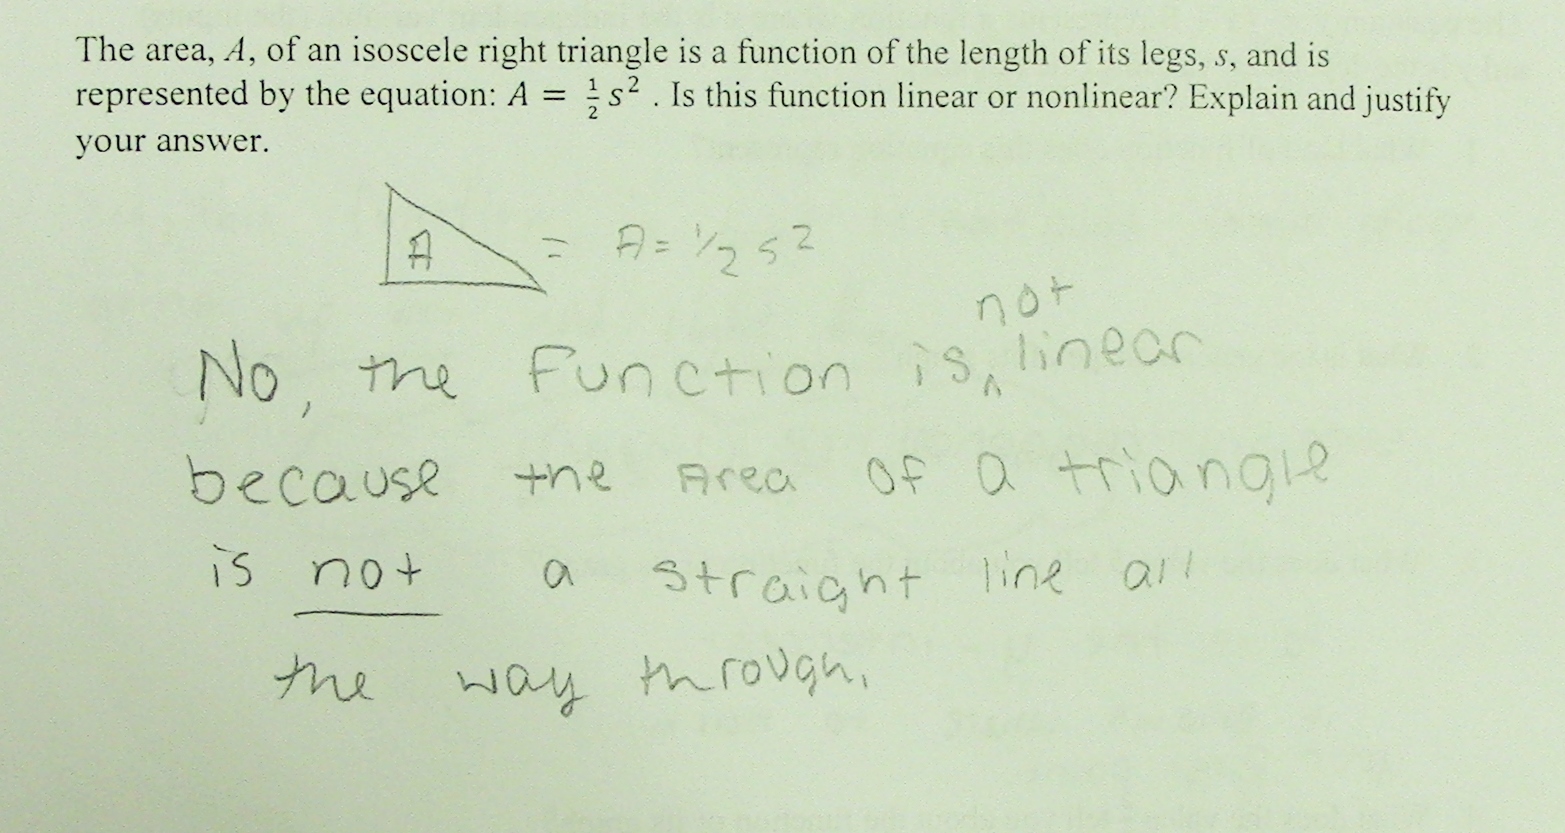 The area, A, of an isoscele right triangle is a function of the length of its legs, s, and is
represented by the equation: A = ½ s² . Is this function linear or nonlinear? Explain and justify
your answer.
A = A = 1/2 s²
not
No, the Function is, ^ linear
because the Area of a triangle
is not a straight line all
the way through.